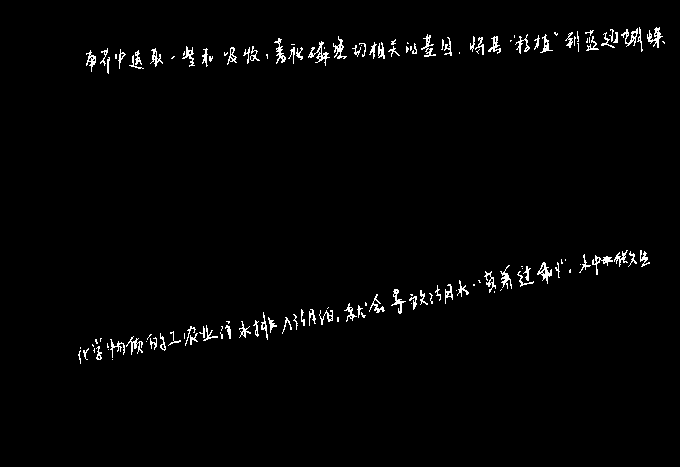 南荠中选取一些和吸收、蓄积磷密切相关的基因，将其“移植”到蓝翅蝴蝶
化学物质的工农业污水排入湖泊，就会导致湖水“营养过剩”，水中微生